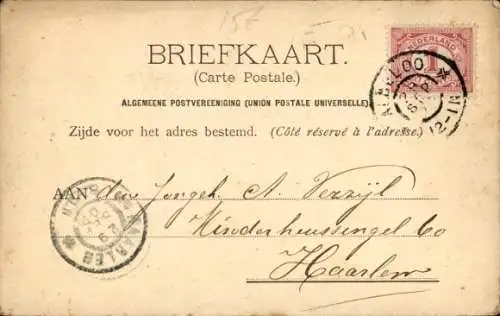 15c
BRIEFKAART.
(Carte Postale.)
ALGEMEENE POSTVEREENIGING (UNION POSTALE UNIVERSELLE)
Zijde voor het adres bestemd. (Côté réservé à l'adresse.)
NEDERLAND
1
AAN den Jongeh. A. Verzijl
Kinderhuissengel 60
Haarlem
HAARLEM